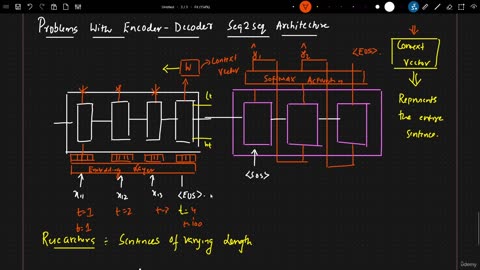 Problems With Encoder-Decoder Seq2seq Architecture
W → Context Vector
ŷ1 ŷ2 <EOS>
Softmax Activation
Context Vector
Represents the entire sentence.
Ct
ht
Embedding Layer
<SOS>
x11 x12 x13 <EOS>
t=1 t=2 t=3 t=4
t=1 t=100
Researchers ÷ Sentences of varying length
Udemy